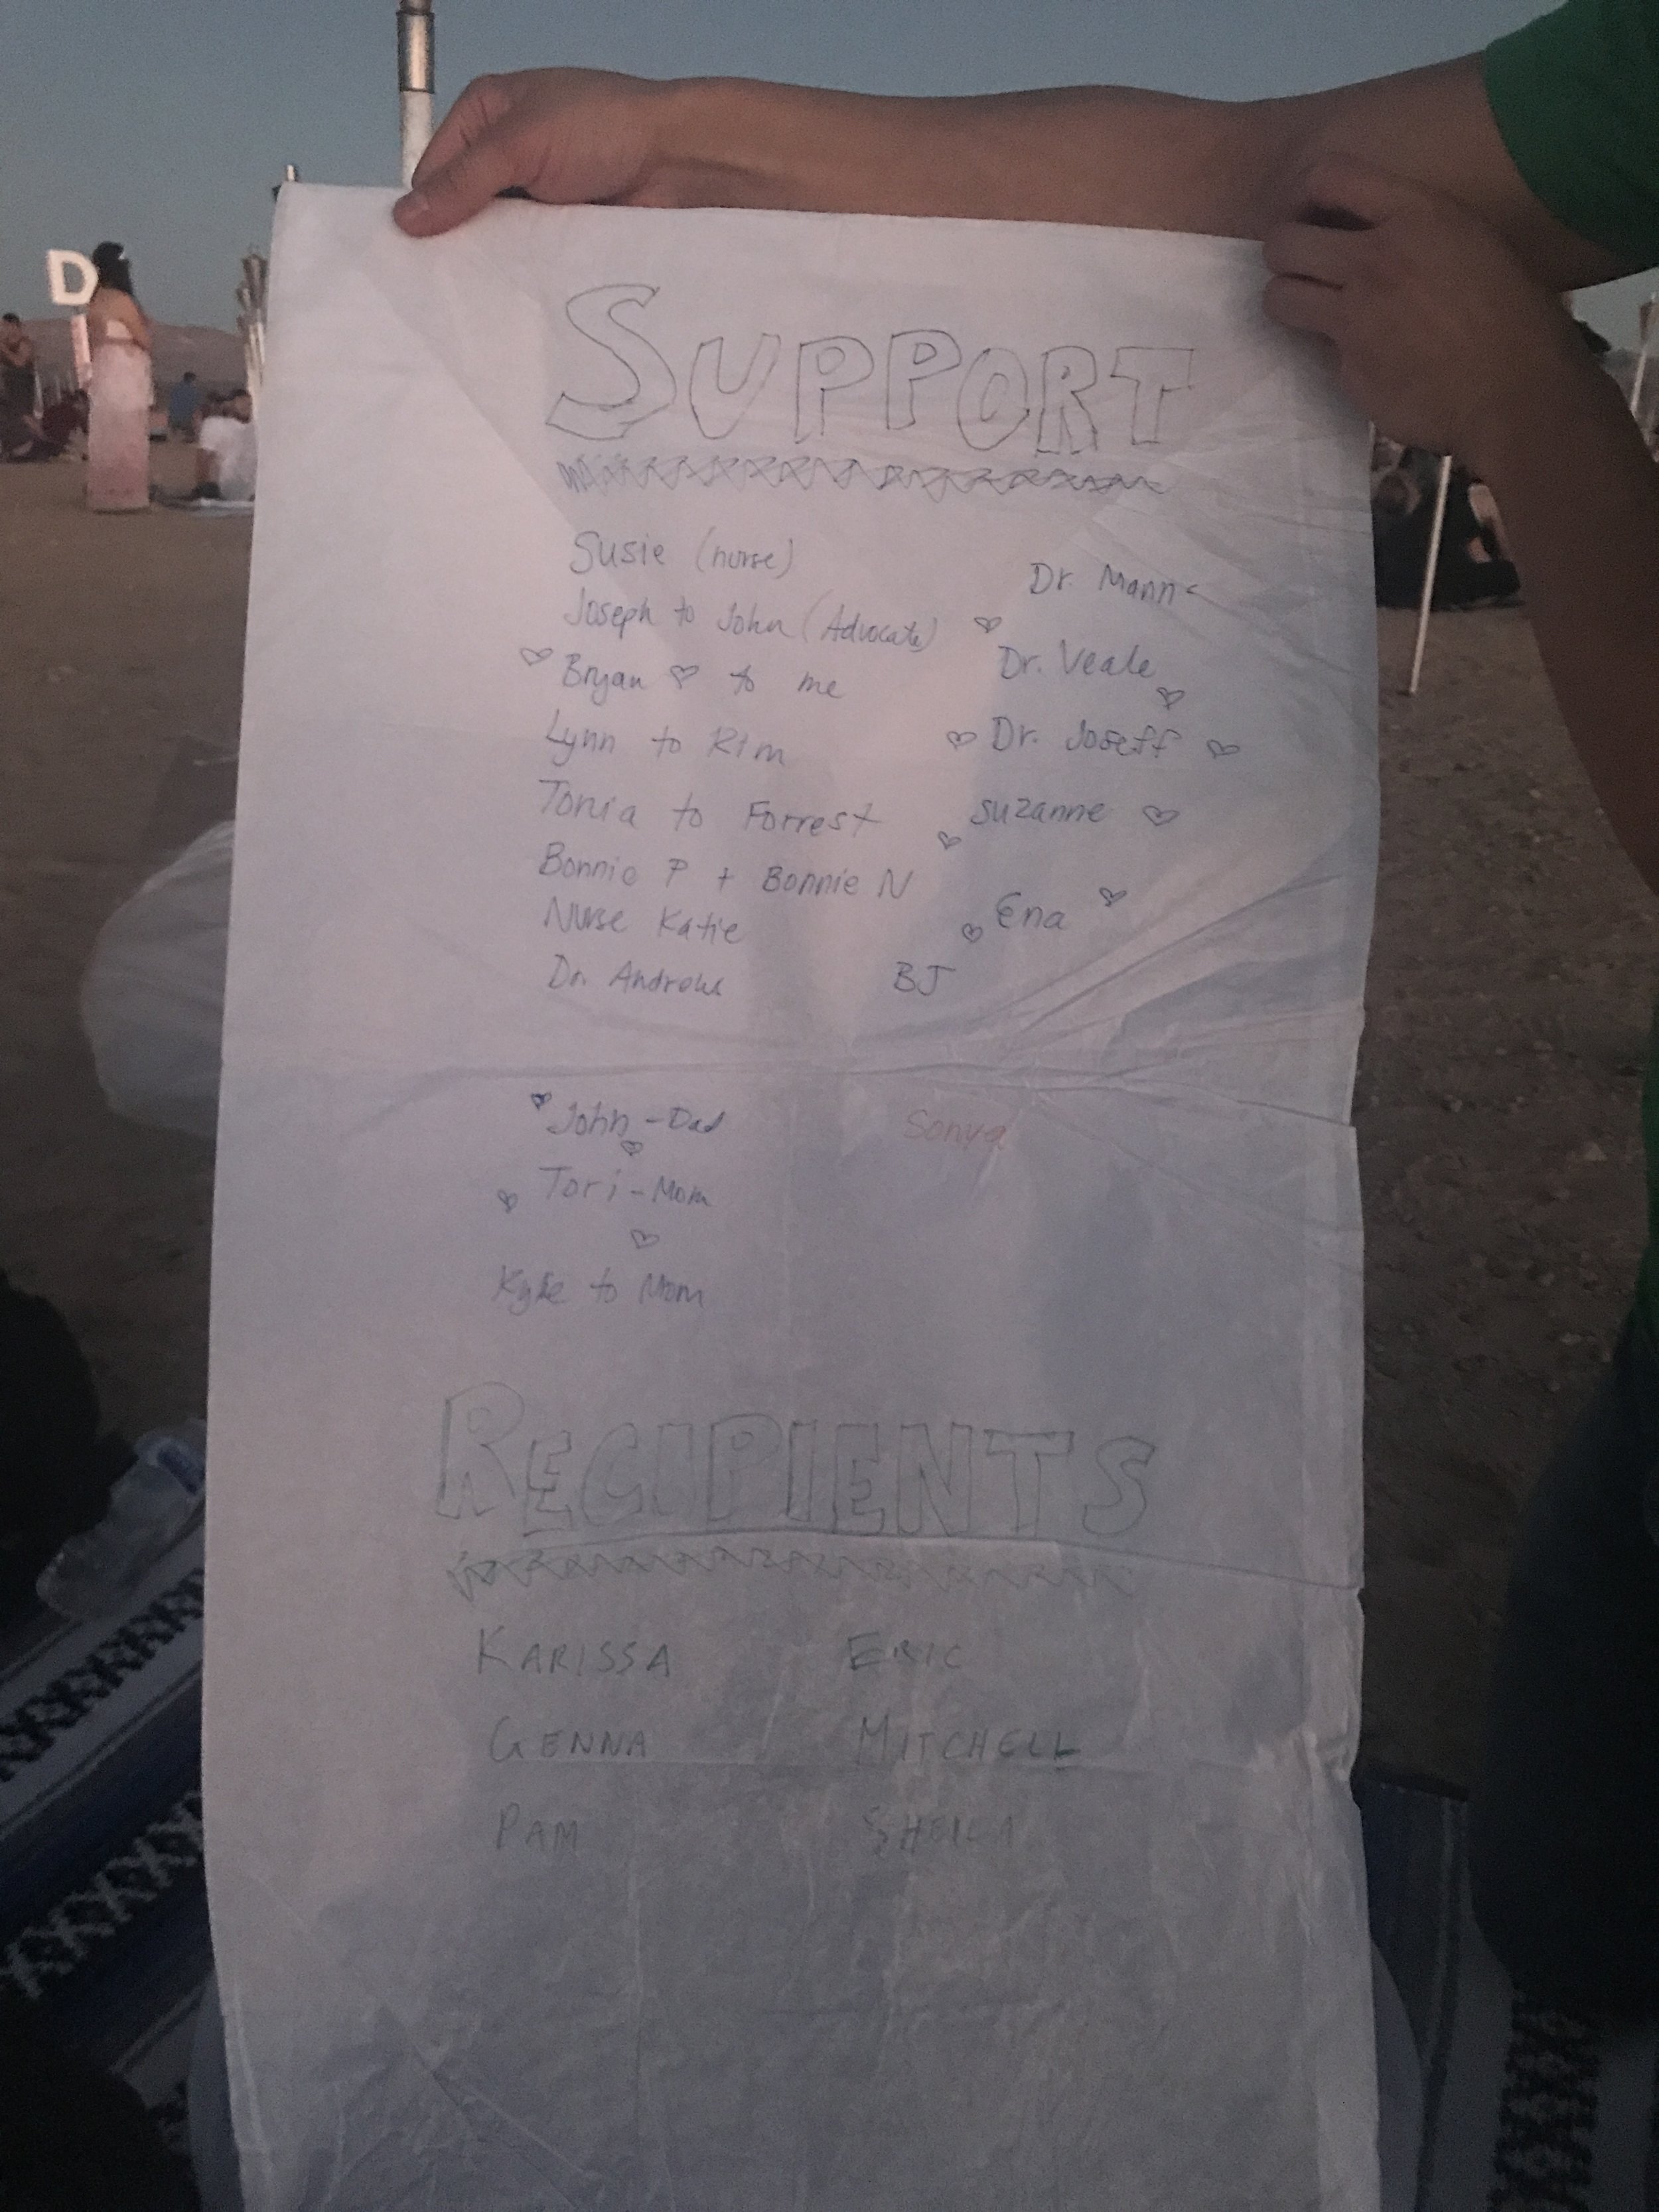 D
SUPPORT
Susie (nurse)
Dr. Mann
Joseph to John (Advocate)
Dr. Veale
Bryan to me
Dr. Joseff
Lynn to Rim
Suzanne
Tonia to Forrest
Bonnie P + Bonnie N
Ena
Nurse Katie
Dr. Andrews
BJ
John - Dad
Sonya
Tori - Mom
Kylie to Mom
RECIPIENTS
KARISSA
ERIC
GENNA
MITCHELL
PAM
SHEILA